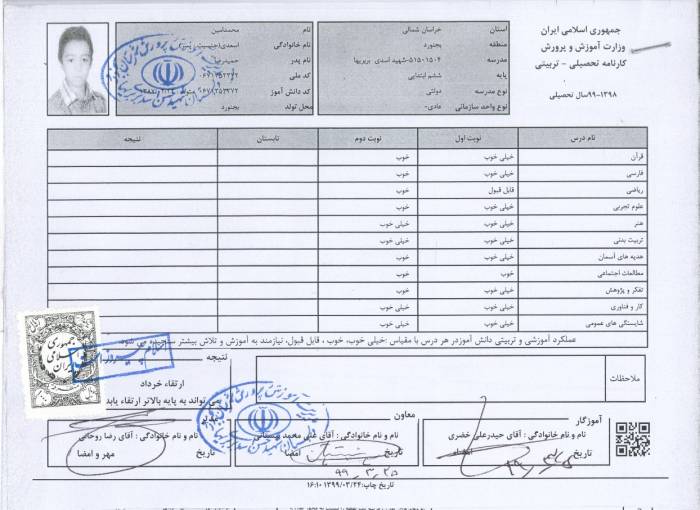 جمهوری اسلامی ایران
وزارت آموزش و پرورش
کارنامه تحصیلی - تربیتی
۱۳۹۸-۹۹سال تحصیلی
استان خراسان شمالی
منطقه بجنورد
مدرسه ۵۱۵۰۱۵۰۴-شهید اسدی بربریها
پایه ششم ابتدایی
نوع مدرسه دولتی
نوع واحد سازمانی عادی-
نام محمدامین
نام خانوادگی اسعدی
نام پدر حمیدرضا
کد ملی
کد دانش آموز
محل تولد بجنورد
نام درس نوبت اول نوبت دوم تابستان نتیجه
قرآن خیلی خوب خوب
فارسی خیلی خوب خوب
ریاضی قابل قبول خوب
علوم تجربی خیلی خوب خوب
هنر خیلی خوب خیلی خوب
تربیت بدنی خیلی خوب خیلی خوب
هدیه های آسمان خیلی خوب خیلی خوب
مطالعات اجتماعی خوب خوب
تفکر و پژوهش خیلی خوب خوب
کار و فناوری خیلی خوب خیلی خوب
شایستگی های عمومی خیلی خوب خیلی خوب
عملکرد آموزشی و تربیتی دانش آموزدر هر درس با مقیاس :خیلی خوب، خوب ، قابل قبول، نیازمند به آموزش و تلاش بیشتر می شود.
ملاحظات
نتیجه
ارتقاء خرداد
می تواند به پایه بالاتر ارتقاء یابد
جمهوری
اسلامی
ایران
آموزگار
نام و نام خانوادگی : آقای حیدرعلی خضری
تاریخ امضاء
معاون
نام و نام خانوادگی : آقای علی محمد
تاریخ امضا
۹۹.۳.۲۵
نام و نام خانوادگی : آقای رضا روحانی
تاریخ مهر و امضا
تاریخ چاپ:۱۳۹۹/۰۳/۲۴ ۱۶:۱۰